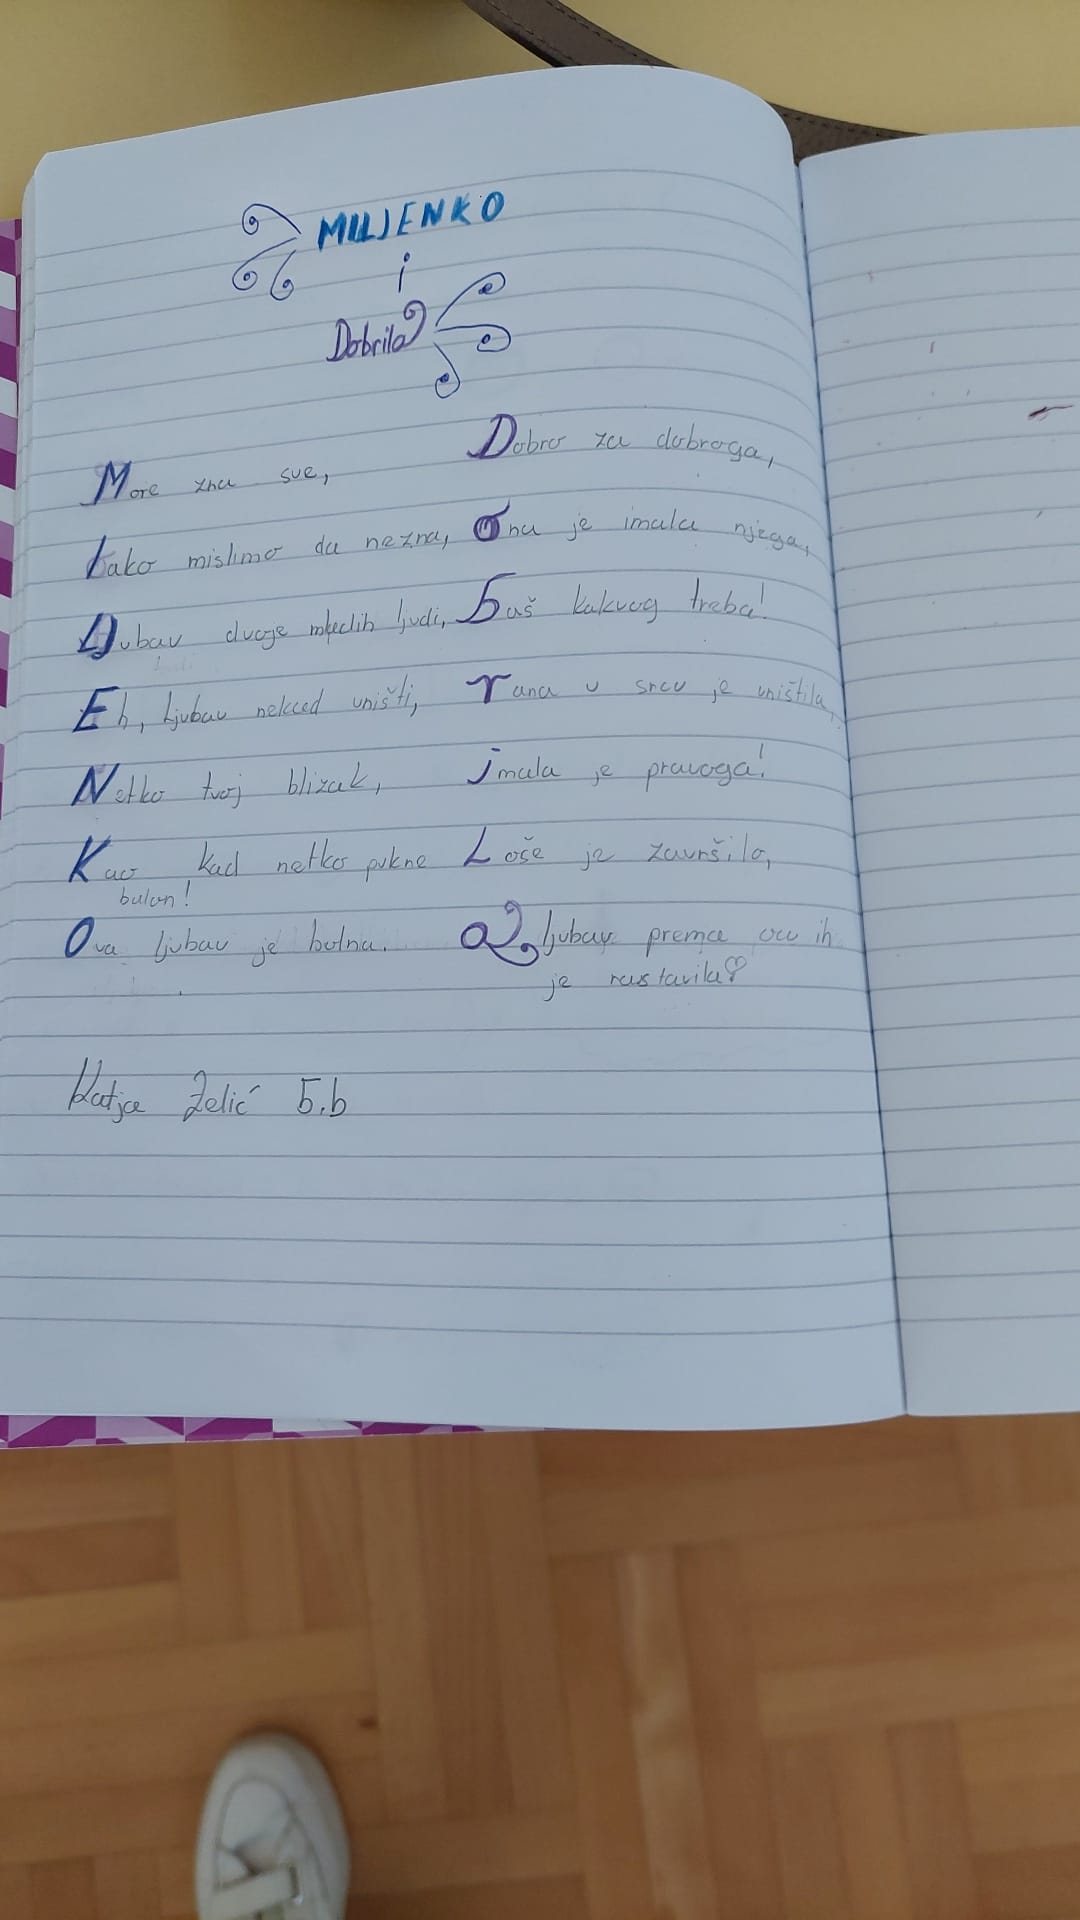 MILJENKO
i
Dobrila
More zna sve,
Iako mislimo da nezna,
Ljubav dvoje mladih ljudi,
Eh, ljubav nekad uništi,
Netko tvoj blizak,
Kao kad netko pukne
balon!
Ova ljubav je bolna.
Dobro za dobroga,
Ona je imala njega,
Baš kakvog treba!
rana u srcu je uništila,
imala je pravoga!
Loše je završilo,
a ljubav prema ocu ih
je rastavila
Katja Zelić 5.b